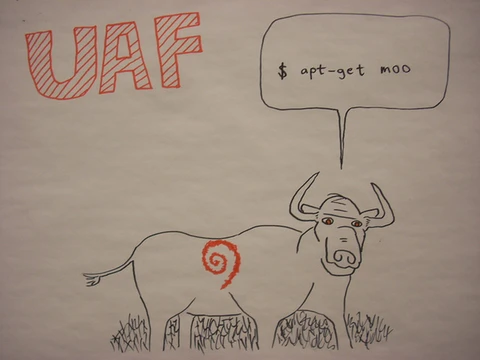 UAF
$ apt-get moo